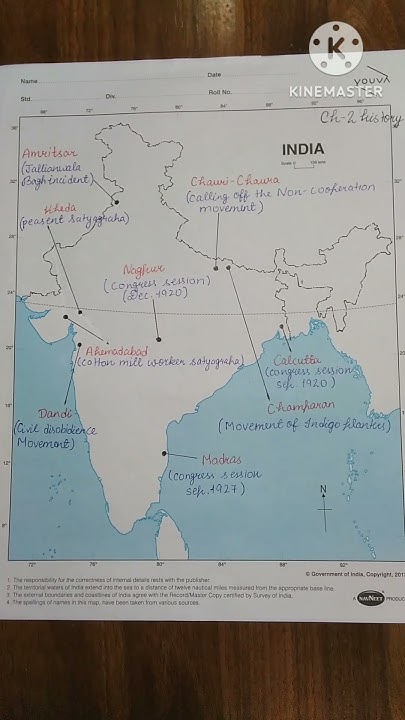 K
KINEMASTER
YOUVA
Name
Date
Std.
Div.
Roll No.
Ch-2 history
INDIA
Scale
Amritsar
(Jallianwala
Bagh incident)
Chauri-Chaura
(Calling off the Non-cooperation
movement)
Kheda
(peasent Satyagraha)
Nagpur
(Congress session)
(Dec. 1920)
Ahemadabad
(Cotton mill worker satyagraha)
Calcutta
(congress session
sep. 1920)
Dandi
(Civil disobidience
Movement)
Champaran
(Movement of Indigo planters)
Madras
(congress session
sep. 1927)
N
68° 72° 76° 80° 84° 88° 92° 96°
36°
32°
28°
24°
20°
16°
12°
8°
72° 76° 80° 84° 88° 92°
© Government of India, Copyright, 201
1. The responsibility for the correctness of internal details rests with the publisher.
2. The territorial waters of India extend into the sea to a distance of twelve nautical miles measured from the appropriate base line.
3. The external boundaries and coastlines of India agree with the Record/Master Copy certified by Survey of India.
4. The spellings of names in this map, have been taken from various sources.
A NAVNEET PRODUC